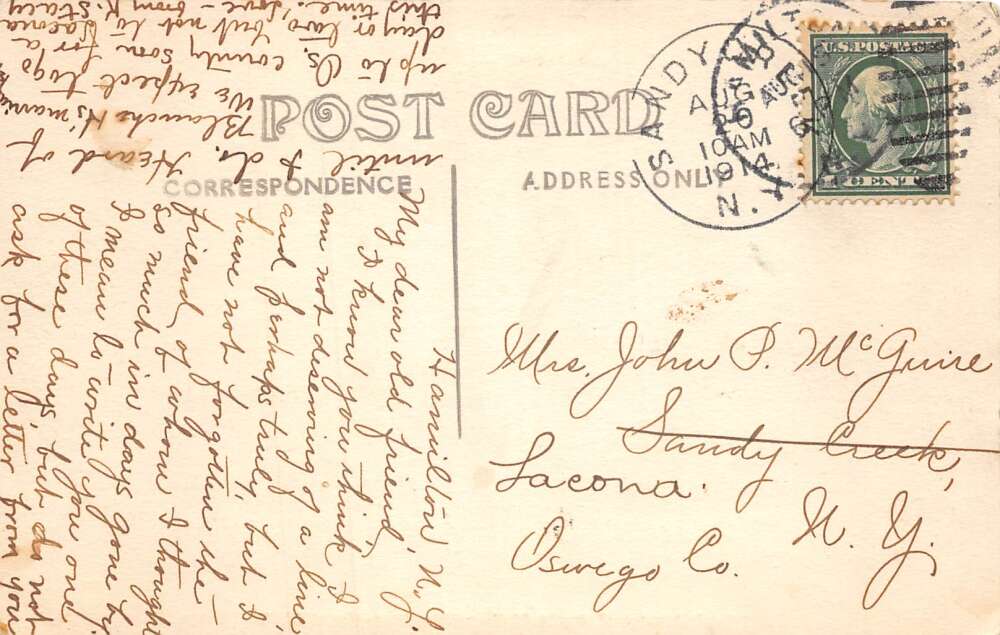 POST CARD
CORRESPONDENCE
ADDRESS ONLY
U.S. POSTAGE
1 CENT 1
SANDY
AUG
26
10 AM
1914
N.Y.
AUG
Mrs. John P. McGuire
Sandy Creek,
Lacona.
N. Y.
Oswego Co.
Hamilton, N.Y.
My dear old friend,
I know you think I
am not deserving of a line
and perhaps truly, but I
have not forgotten the
friend of whom I thought
so much in days gone by
I mean to write you one
of these days but do not
ask for a letter from you
until I do. Heard of
Blanche H's marriage
We expect to go
up to Os. county soon for a
day or two but not to Lacona
this time. Love - from K. Stacy